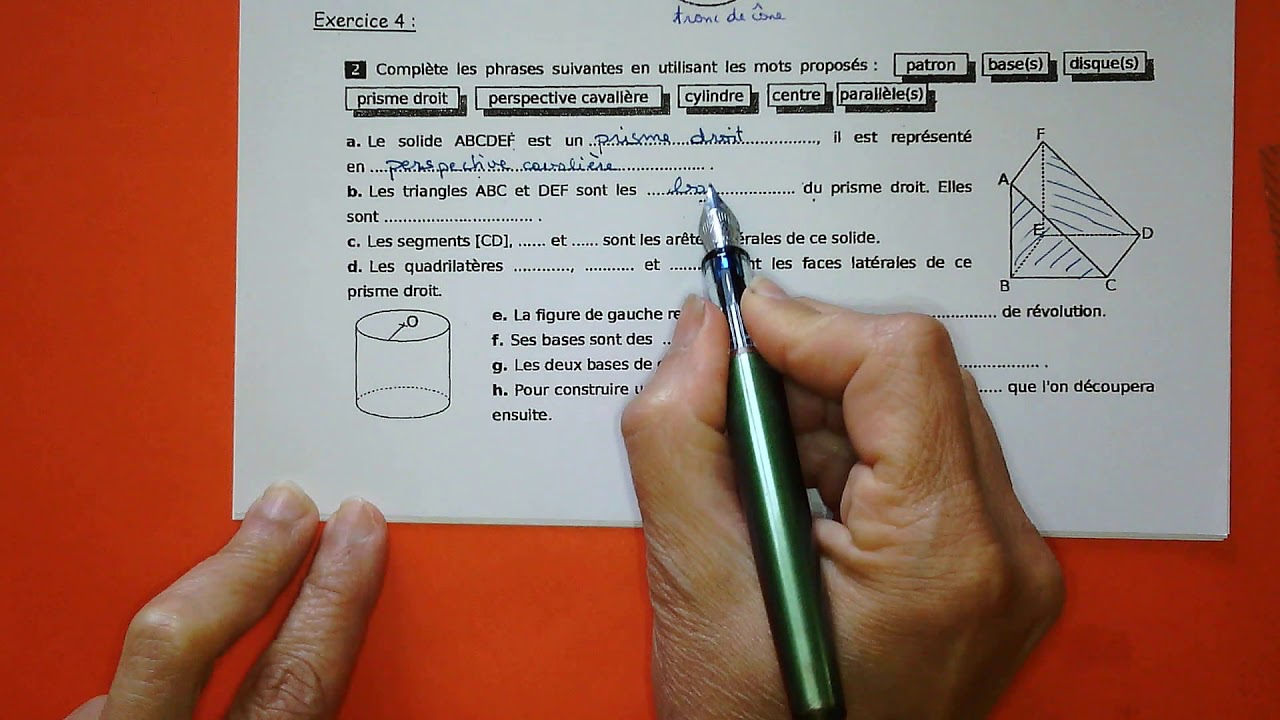 tronc de cône
Exercice 4 :
2 Complète les phrases suivantes en utilisant les mots proposés : patron base(s) disque(s)
prisme droit perspective cavalière cylindre centre parallèle(s)
a. Le solide ABCDEF est un ..prisme droit.............., il est représenté
en ...perspective cavalière.................. .
b. Les triangles ABC et DEF sont les ..... ............... du prisme droit. Elles
sont ................................ .
c. Les segments [CD], ...... et ...... sont les de ce solide.
d. Les quadrilatères ............, ........... et ....... les faces latérales de ce
prisme droit.
F
A
E
D
B
C
O
e. La figure de gauche .............. de révolution.
f. Ses bases sont des ..
g. Les deux bases de .................. .
h. Pour construire ..... que l'on découpera
ensuite.